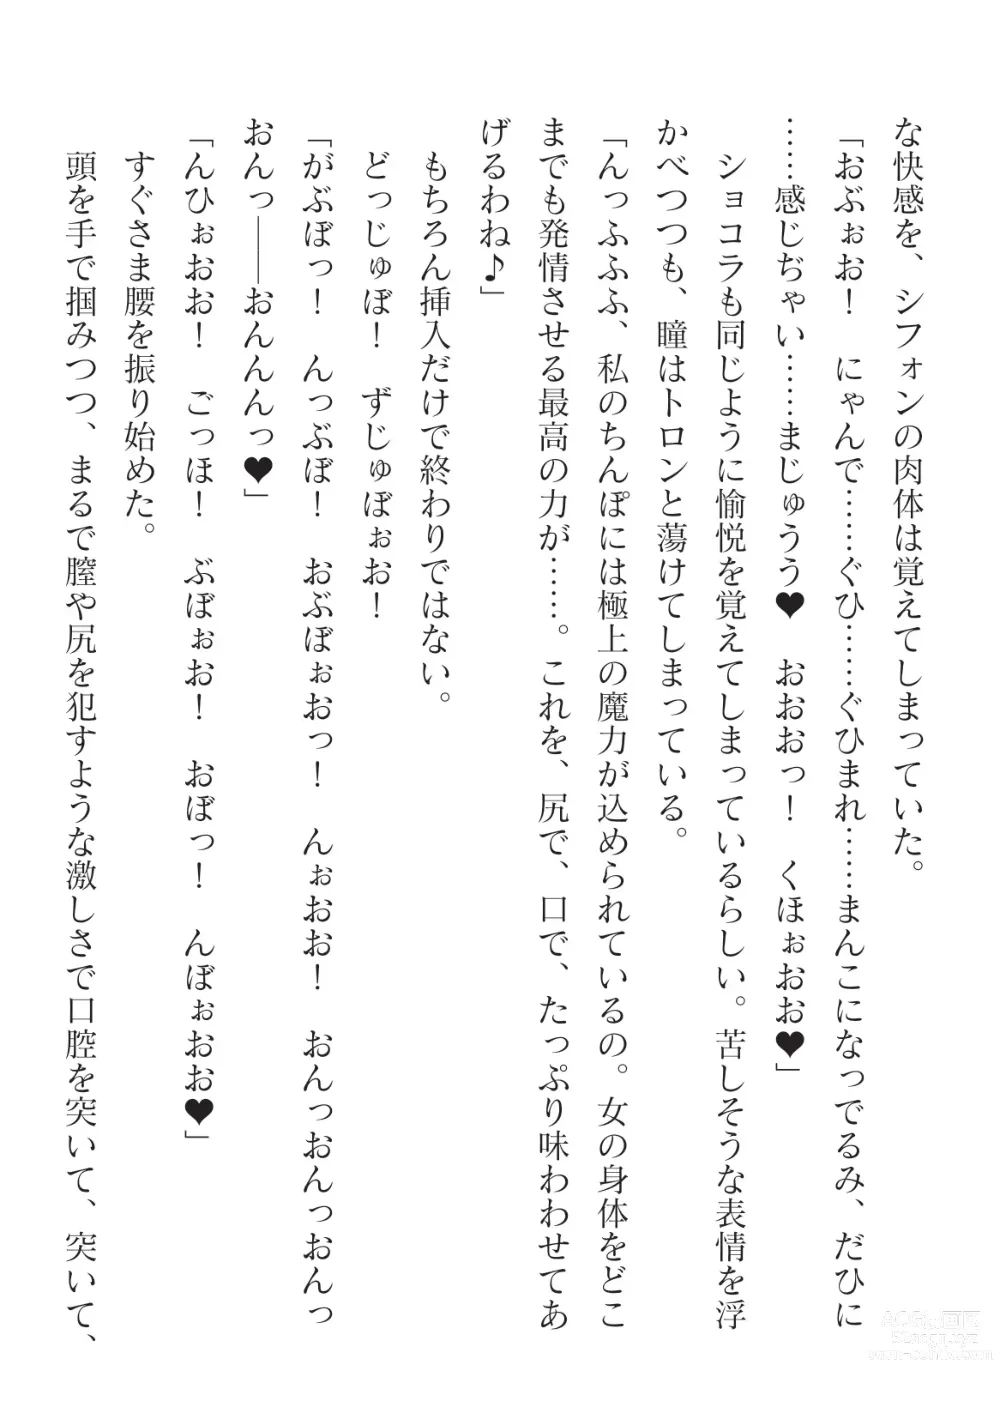 な快感を、シフォンの肉体は覚えてしまっていた。
「おぶぉお!　にゃんで……ぐひ……ぐひまれ……まんこになっでるみ、だひに
……感じぢゃい……まじゅうう♥　おおおっ!　くほぉおお♥」
ショコラも同じように愉悦を覚えてしまっているらしい。苦しそうな表情を浮
かべつつも、瞳はトロンと蕩けてしまっている。
「んっふふふ、私のちんぽには極上の魔力が込められているの。女の身体をどこ
までも発情させる最高の力が……。これを、尻で、口で、たっぷり味わわせてあ
げるわね♪」
もちろん挿入だけで終わりではない。
どっじゅぼ!　ずじゅぼぉお!
「がぶぼっ!　んっぶぼ!　おぶぼぉおっ!　んぉおお!　おんっおんっおんっ
おんっ――おんんんっ♥」
「んひぉおお!　ごっほ!　ぶぼぉお!　おぼっ!　んぼぉおお♥」
すぐさま腰を振り始めた。
頭を手で掴みつつ、まるで膣や尻を犯すような激しさで口腔を突いて、突いて、